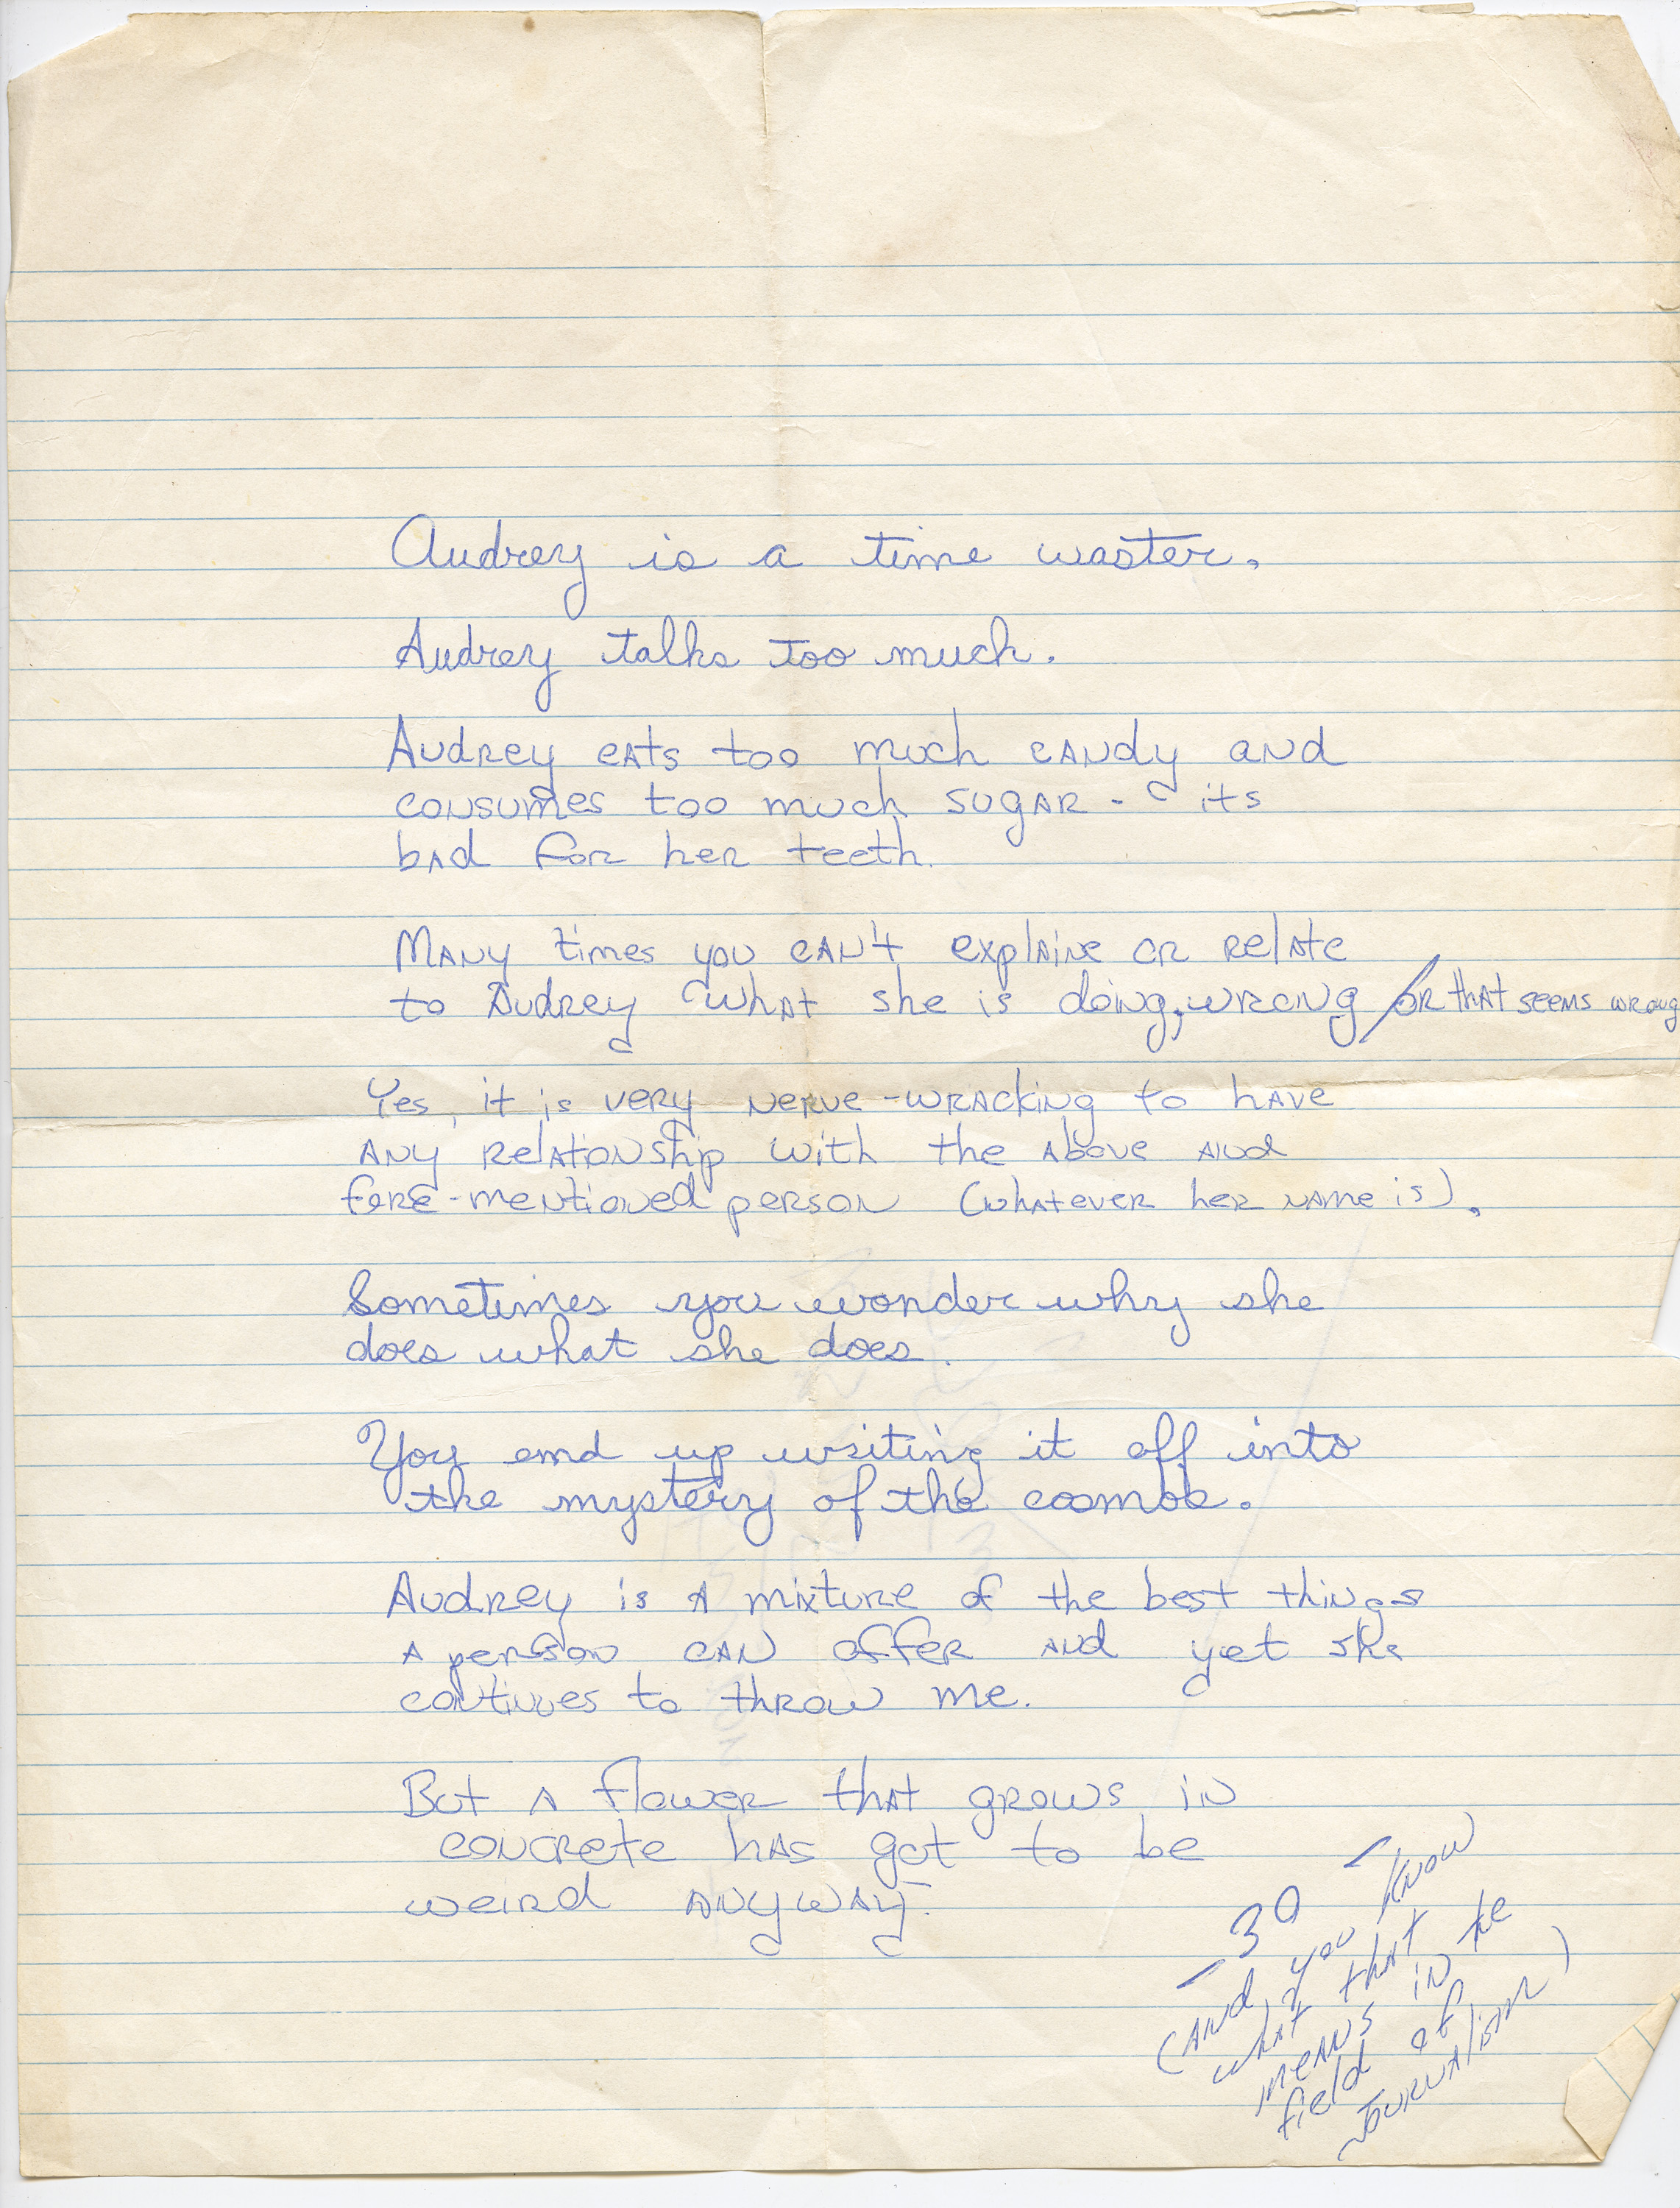 Audrey is a time waster.
Audrey talks too much.
Audrey eats too much candy and
consumes too much sugar - its
bad for her teeth.
Many times you can't explaine or relate
to Audrey what she is doing, wrong / or that seems wrong
Yes, it is very nerve-wracking to have
any relationship with the above and
fore-mentioned person (whatever her name is).
Sometimes you wonder why she
does what she does.
You end up writing it off into
the mystery of the cosmos.
Audrey is a mixture of the best things
a person can offer and yet she
continues to throw me.
But a flower that grows in
concrete has got to be
weird anyway.
-30-
(And you know
what that
means in the
field of
journalism)